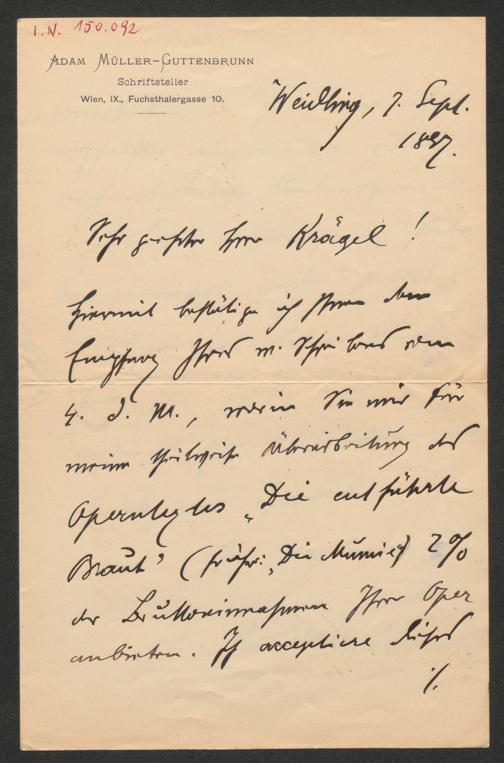 I.N. 150.092
ADAM MÜLLER-GUTTENBRUNN
Schriftsteller
Wien, IX., Fuchsthalergasse 10.
Weidling, 7. Sept.
1897.
Sehr geehrter Herr Krägel!
Hiermit bestätige ich Ihnen den
Empfang Ihres w. Schreibens vom
4. d. M., worin Sie mir für
meine theilweise Überarbeitung des
Operntextes „Die entführte
Braut" (früher: „Die Mumie") 2%
der Bruttoeinnahmen Ihrer Oper
anbieten. Ich acceptiere dieses
./.